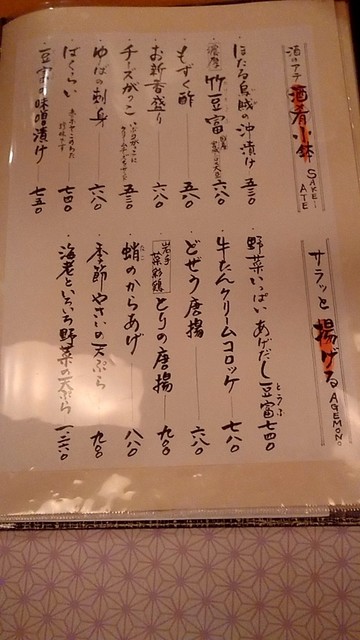 酒のアテ 酒肴小鉢 SAKE ATE
・ほたる烏賊の沖漬け 五三〇
・濃厚 竹豆富 六八〇
・もずく酢 五八〇
・お新香盛り 六八〇
・チーズがっこ 五三〇
・ゆばの刺身 六八〇
・ばくらい 七四〇
・豆富の味噌漬け 七五〇
サラッと 揚げる AGEMONO
・野菜いっぱいあげだし豆富 とうふ 七四〇
・牛たんクリームコロッケ 七八〇
・どぜう唐揚 六八〇
・岩手菜彩鶏 とりの唐揚 九八〇
・蛸のからあげ たこ 八八〇
・季節やさいの天ぷら 九八〇
・海老といろいろ野菜の天ぷら 一、二六〇